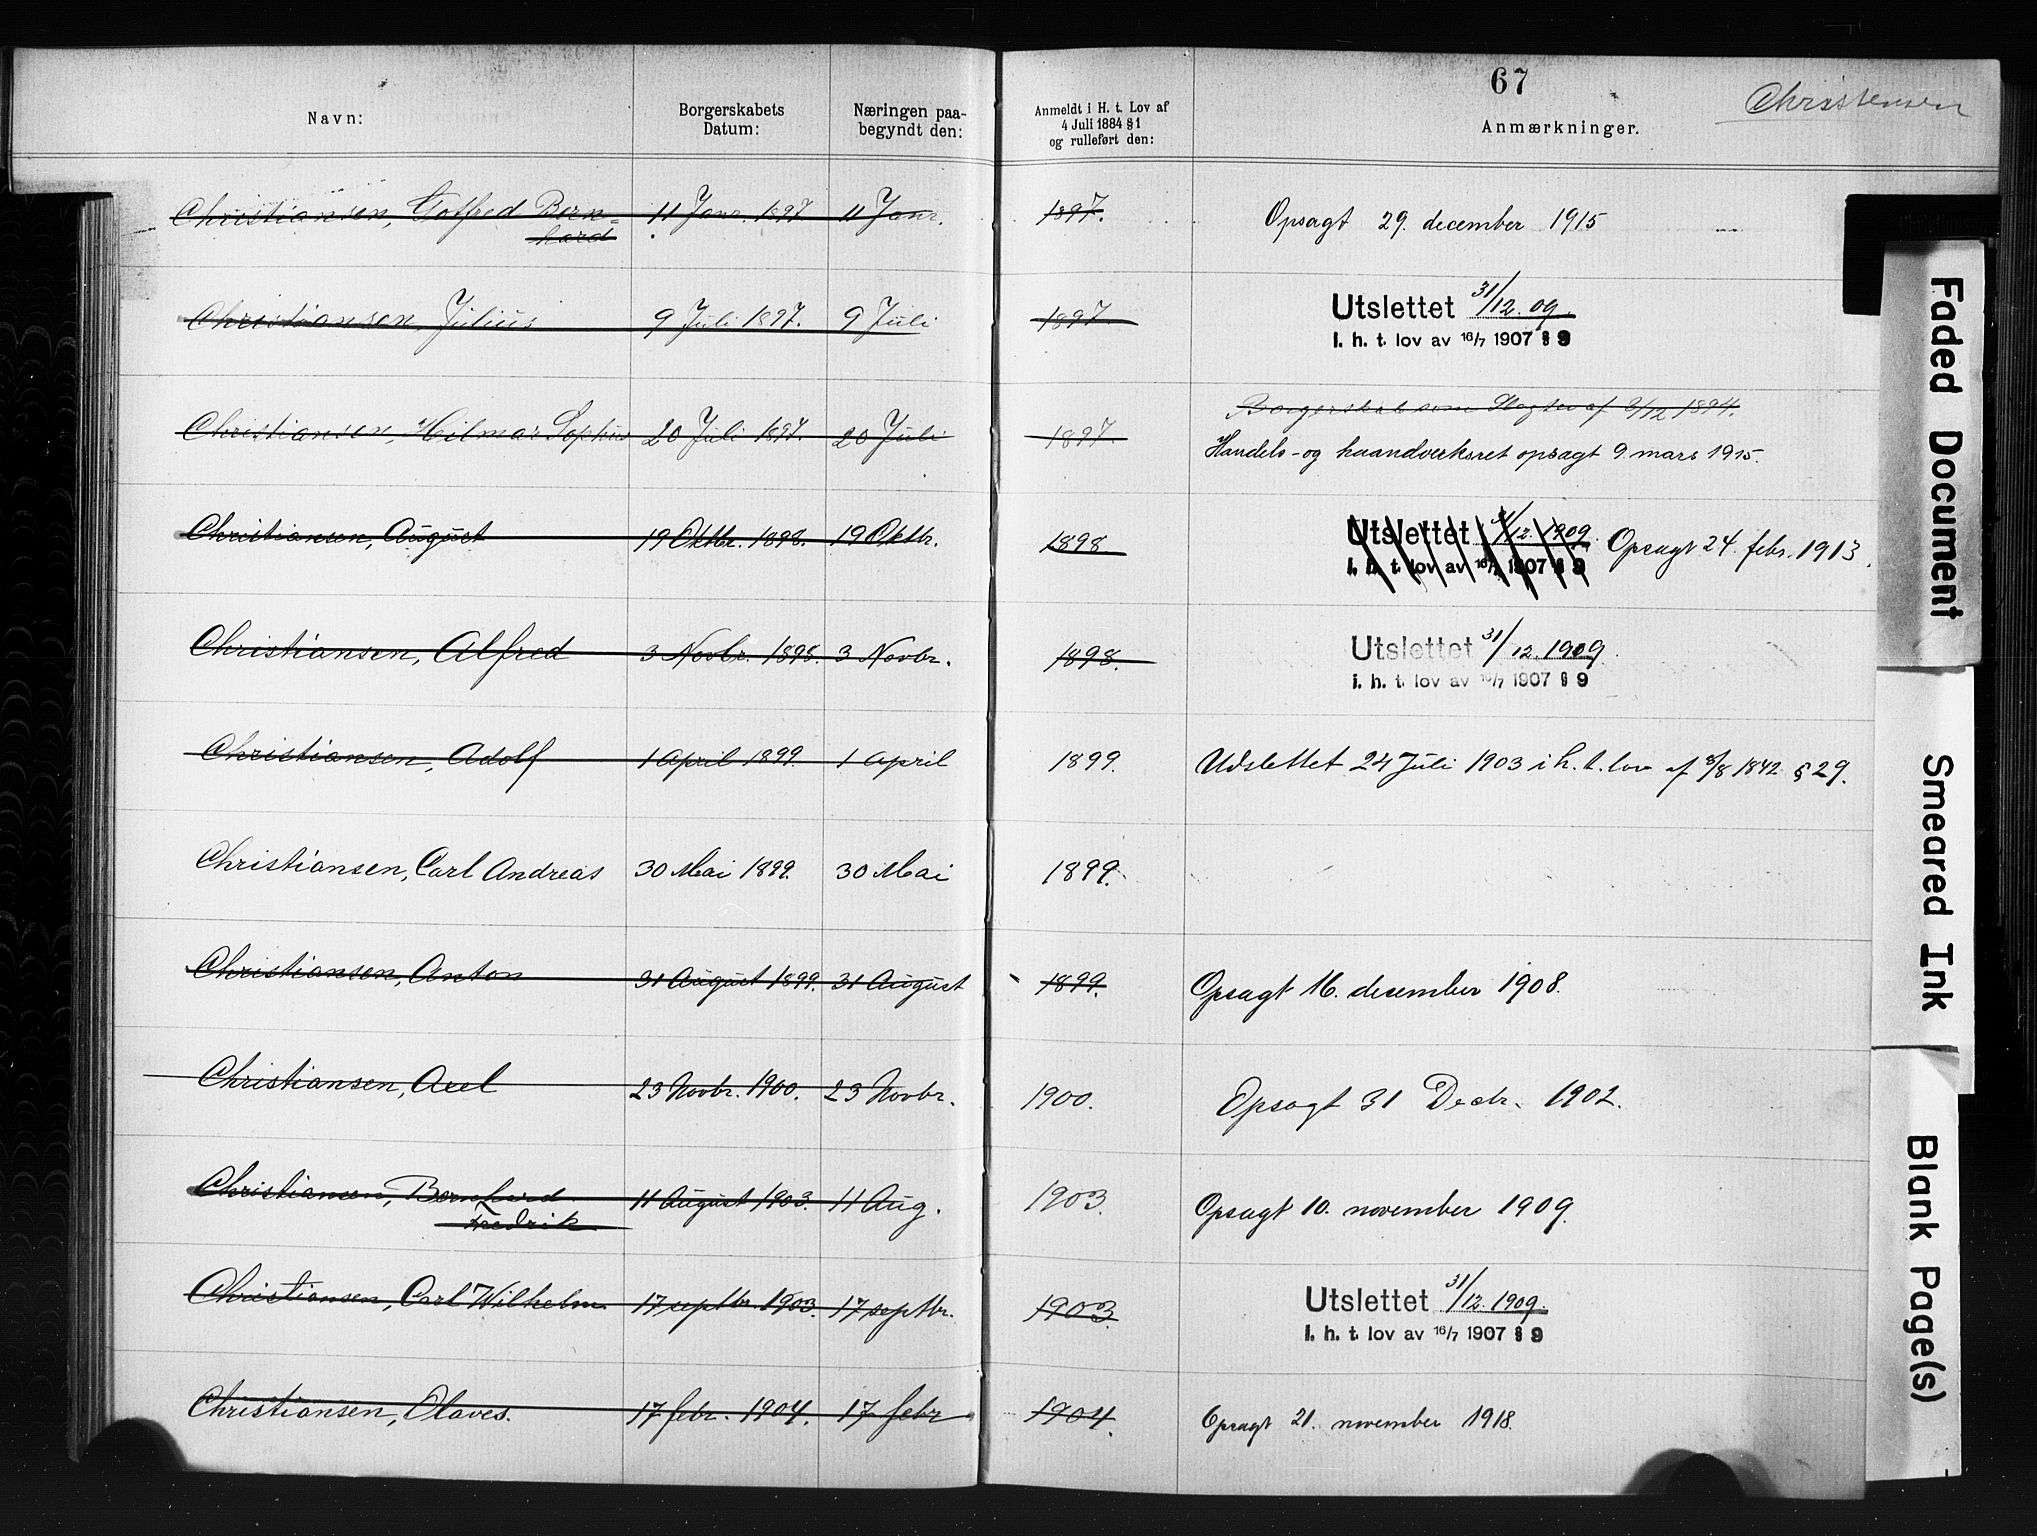 67
Christensen
Navn: Borgerskabets Datum: Næringen paa-begyndt den: Anmeldt i H. t. Lov af 4 Juli 1884 § 1 og rulleført den: Anmærkninger.
Christiansen, Gotfred Bern= 11 Janr. 1897 11 Janr. 1897. Opsagt 29. december 1915
hard
Christiansen, Julius 9 Juli 1897. 9 Juli 1897. Utslettet 31/12. 09.
I. h. t. lov av 16/7 1907 § 9
Borgerskab som Slagter af 3/12 1894.
Christiansen, Hilmar Sophus 20 Juli 1897. 20 Juli 1897.
Handels- og haandverksret opsagt 9. mars 1915.
Christiansen, August 19 Oktbr. 1898. 19 Oktbr. 1898 Utslettet 31/12. 1909 Opsagt 24. febr. 1913.
I. h. t. lov av 16/7 1907 § 9
Christiansen, Alfred 3 Novbr. 1898. 3 Novbr. 1898. Utslettet 31/12. 1909.
I. h. t. lov av 16/7 1907 § 9
Christiansen, Adolf 1 April 1899. 1 April 1899. Udslettet 24 Juli 1903 i h. t. lov af 8/8 1842 § 29.
Christiansen, Carl Andreas 30 Mai 1899. 30 Mai 1899.
Christiansen, Anton 31 August 1899. 31 August 1899. Opsagt 16. desember 1908.
Christiansen, Axel 23 Novbr. 1900. 23 Novbr. 1900. Opsagt 31 Decbr. 1902.
Christiansen, Bernhard 11 August 1903. 11 Aug. 1903. Opsagt 10. november 1909.
Fredrik
Christiansen, Carl Wilhelm 17 septbr. 1903. 17 septbr. 1903. Utslettet 31/12. 1909.
I. h. t. lov av 16/7 1907 § 9
Christiansen, Olaves. 17 febr. 1904. 17 febr 1904. Opsagt 21. november 1918.
Faded Document
Smeared Ink
Blank Page(s)